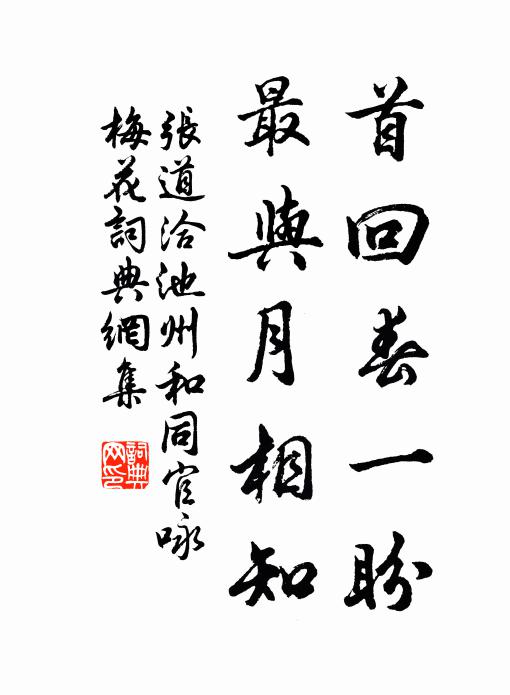 首回春一盼
最與月相知
張道洽池州和同官咏
梅花詞典網集
詞典網印